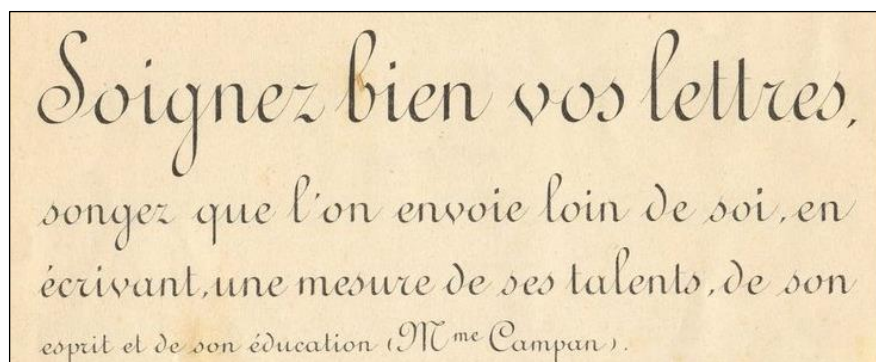 Soignez bien vos lettres,
songez que l'on envoie loin de soi, en
écrivant, une mesure de ses talents, de son
esprit et de son éducation (Mme Campan).